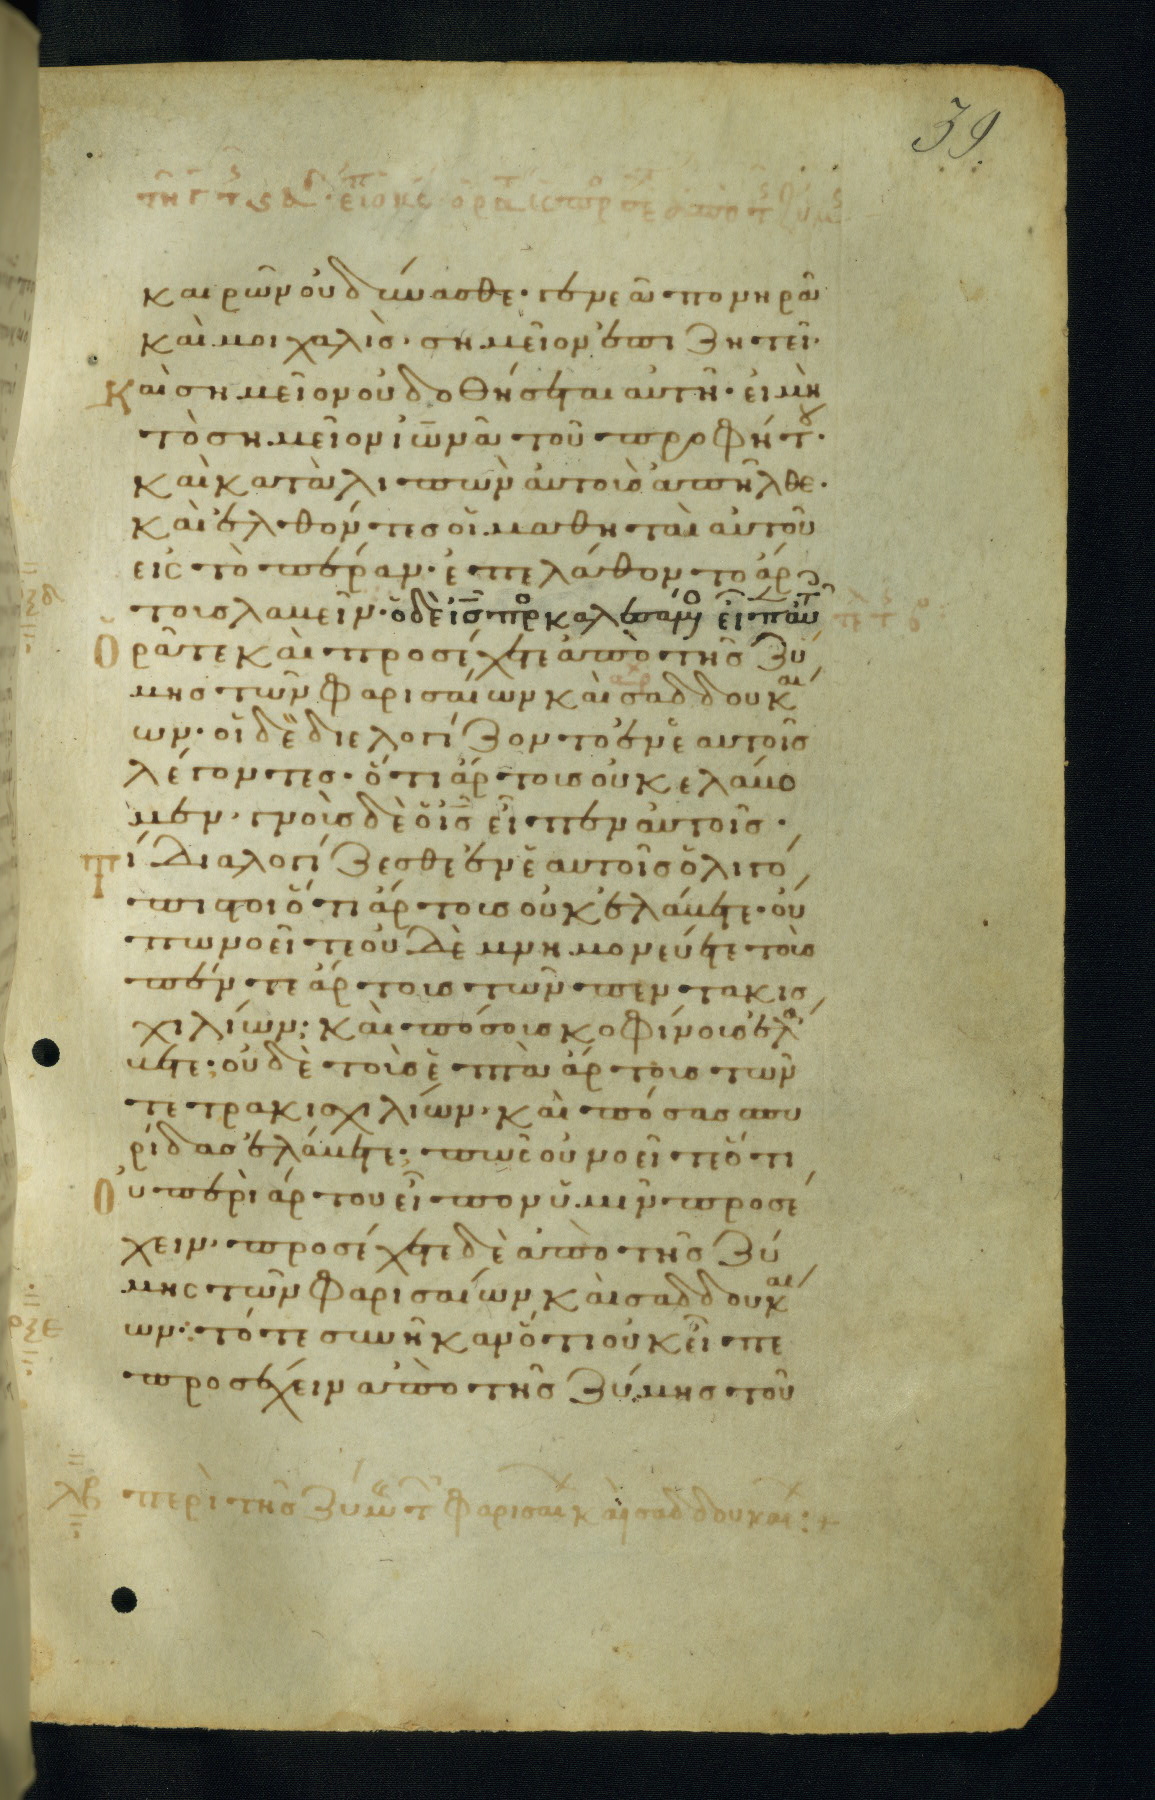 39
καιρῶν οὐ δύνασθε· γενεὰ πονηρὰ
καὶ μοιχαλὶσ· σημεῖον ἐπιζητεῖ·
Καὶ σημεῖον οὐ δοθήσεται αὐτῆ· εἰ μὴ
τὸ σημεῖον ἰωνᾶ τοῦ προφήτου·
καὶ καταλιπὼν αὐτοὺσ ἀπῆλθε·
καὶ ἐλθόντεσ οἱ μαθηταὶ αὐτοῦ
εἰς τὸ πέραν· ἐπελάθοντο ἄρ
τουσ λαβεῖν· ὁ δὲ ἰς προσκαλεσάμενος
Ὁρᾶτε καὶ προσέχετε ἀπὸ τῆσ ζύ
μησ τῶν φαρισαίων καὶ σαδδουκαί
ων· οἱ δὲ διελογίζοντο ἐν ἑαυτοῖσ
λέγοντεσ· ὅτι ἄρτουσ οὐκ ἐλάβο
μεν· γνοὺσ δὲ ὁ ἰς εἶπεν αὐτοῖσ·
Τί διαλογίζεσθε ἐν ἑαυτοῖσ ὀλιγό
πιστοι ὅτι ἄρτουσ οὐκ ἐλάβετε· οὔ
πω νοεῖτε οὐδὲ μνημονεύετε τοὺσ
πέντε ἄρτουσ τῶν πεντακισ
χιλίων; καὶ πόσουσ κοφίνουσ ἐλά
βετε· οὐδὲ τοὺσ ἑπτὰ ἄρτουσ τῶν
τετρακισχιλίων· καὶ πόσασ σπυ
ρίδασ ἐλάβετε; πῶσ οὐ νοεῖτε ὅτι
Οὐ περὶ ἄρτου εἶπον ὑμῖν προσέ
χειν· προσέχετε δὲ ἀπὸ τῆσ ζύ
μης τῶν φαρισαίων καὶ σαδδουκαί
ων· τότε συνῆκαν ὅτι οὐκ εἶπε
προσέχειν ἀπὸ τῆσ ζύμησ τοῦ
ρξε
λβ περὶ τῆσ ζύμης τῶν φαρισαίων καὶ σαδδουκαίων